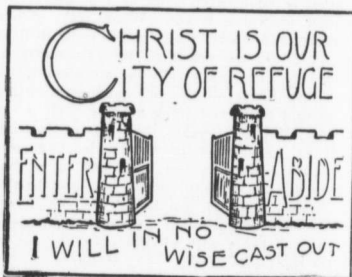 CHRIST IS OUR
CITY OF REFUGE
ENTER ABIDE
I WILL IN NO
WISE CAST OUT